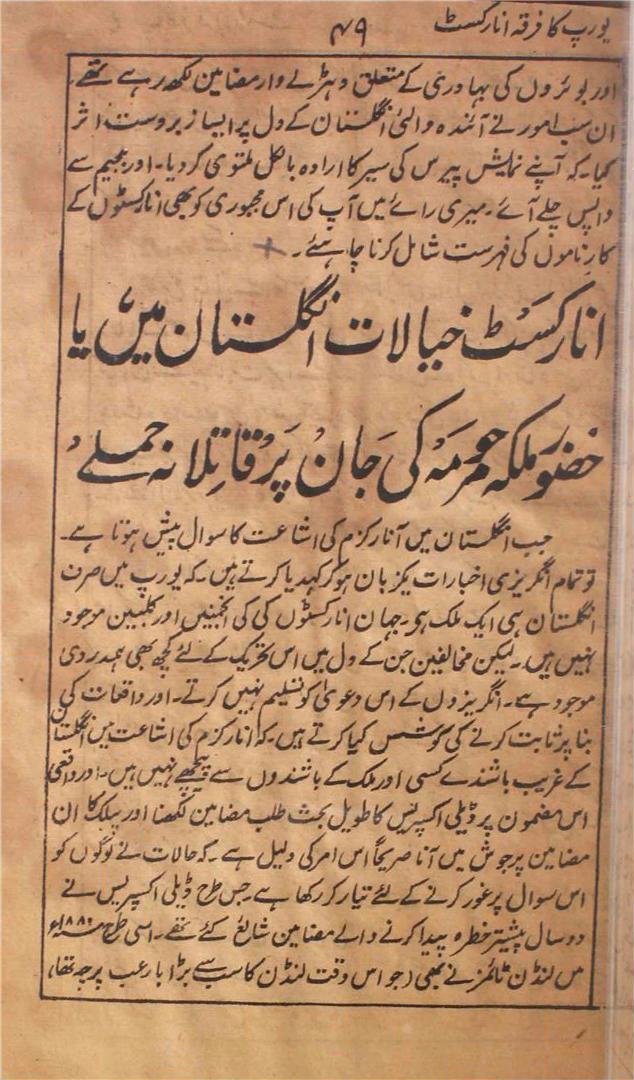 یورپ کا فرقہ انارکسٹ
۴۹
اور بوئروں کی بہادری کے متعلق دھڑلے وار مضامین لکھ رہے تھے۔
ان سب امور نے آئندہ والئ انگلستان کے دل پر ایسا زبردست اثر
کیا۔ کہ آپنے نمایش پیرس کی سیر کا ارادہ بالکل ملتوی کر دیا۔ اور بلجیم سے
واپس چلے آئے۔ میری رائے میں آپ کی اس مجبوری کو بھی انارکسٹوں کے
کارناموں کی فہرست شامل کرنا چاہئے۔
انارکسٹ خیالات انگلستان میں یا
حضور ملکہ مرحومہ کی جان پر قاتلانہ حملے
جب انگلستان میں انارکزم کی اشاعت کا سوال پیش ہوتا ہے۔
تو تمام انگریزی اخبارات یکزبان ہو کر کہدیا کرتے ہیں۔ کہ یورپ میں صرف
انگلستان ہی ایک ملک ہی۔ جہان انارکسٹوں کی کی انجمنیں اور کلبیں موجود
نہیں ہیں۔ لیکن مخالفین جن کے دل میں اس تحریک کے لئے کچھ بھی ہمدردی
موجود ہے۔ انگریزوں کے اس دعویٰ کو تسلیم نہیں کرتے۔ اور واقعات کی
بنا پر ثابت کرنے کی کوشس کیا کرتے ہیں۔ کہ انارکزم کی اشاعت میں انگلستان
کے غریب باشندے کسی اور ملک کے باشندوں سے پیچھے نہیں ہیں۔ اور واقعی
اس مضمون پر ڈیلی اکسپریس کا طویل بحث طلب مضامین لکھنا اور پبلک کا ان
مضامین پر جوش میں آنا صریحاً اس امر کی دلیل ہے۔ کہ حالات نے لوگوں کو
اس سوال پر غور کرنے کے لئے تیار کر رکھا ہے۔ جس طرح ڈیلی اکسپریس نے
دو سال پیشتر خطرہ پیدا کرنے والے مضامین شایع کئے تھے۔ اسی طرح
میں لنڈن ٹائمز نے بھی (جو اس وقت لنڈن کا سب سے بڑا بارعب پرچہ تھا،